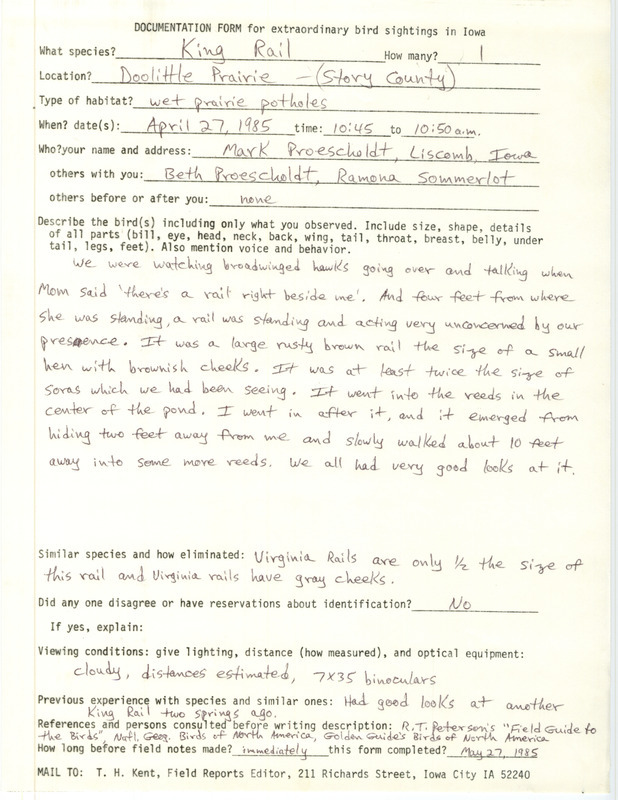 DOCUMENTATION FORM for extraordinary bird sightings in Iowa
What species? King Rail How many? 1
Location? Doolittle Prairie - (Story County)
Type of habitat? wet prairie potholes
When? date(s): April 27, 1985 time: 10:45 to 10:50 a.m.
Who?your name and address: Mark Proescholdt, Liscomb, Iowa
others with you: Beth Proescholdt, Ramona Sommerlot
others before or after you: none
Describe the bird(s) including only what you observed. Include size, shape, details
of all parts (bill, eye, head, neck, back, wing, tail, throat, breast, belly, under
tail, legs, feet). Also mention voice and behavior.
We were watching broadwinged hawks going over and talking when
Mom said 'there's a rail right beside me'. And four feet from where
she was standing, a rail was standing and acting very unconcerned by our
presence. It was a large rusty brown rail the size of a small
hen with brownish cheeks. It was at least twice the size of
soras which we had been seeing. It went into the reeds in the
center of the pond. I went in after it, and it emerged from
hiding two feet away from me and slowly walked about 10 feet
away into some more reeds. We all had very good looks at it.
Similar species and how eliminated: Virginia Rails are only 1/2 the size of
this rail and Virginia rails have gray cheeks.
Did any one disagree or have reservations about identification? No
If yes, explain:
Viewing conditions: give lighting, distance (how measured), and optical equipment:
cloudy, distances estimated, 7X35 binoculars
Previous experience with species and similar ones: Had good looks at another
King Rail two springs ago.
References and persons consulted before writing description: R.T. Peterson's "Field Guide to
the Birds", Natl. Geog. Birds of North America, Golden Guide's Birds of North America
How long before field notes made? immediately this form completed? May 27, 1985
MAIL TO: T. H. Kent, Field Reports Editor, 211 Richards Street, Iowa City IA 52240